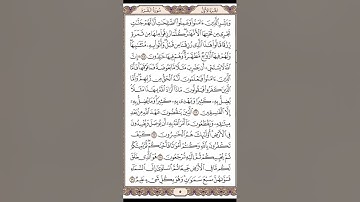 الجُزْءُ الأَوَّلُ سُورَةُ البَقَرَةِ
وَبَشِّرِ ٱلَّذِينَ ءَامَنُوا۟ وَعَمِلُوا۟ ٱلصَّٰلِحَٰتِ أَنَّ لَهُمْ جَنَّٰتٍ
تَجْرِى مِن تَحْتِهَا ٱلْأَنْهَٰرُ كُلَّمَا رُزِقُوا۟ مِنْهَا مِن ثَمَرَةٍ
رِّزْقًا قَالُوا۟ هَٰذَا ٱلَّذِى رُزِقْنَا مِن قَبْلُ وَأُتُوا۟ بِهِۦ مُتَشَٰبِهًا
وَلَهُمْ فِيهَآ أَزْوَٰجٌ مُّطَهَّرَةٌ وَهُمْ فِيهَا خَٰلِدُونَ ٢٥ ۞ إِنَّ
ٱللَّهَ لَا يَسْتَحْىِۦٓ أَن يَضْرِبَ مَثَلًا مَّا بَعُوضَةً فَمَا فَوْقَهَا فَأَمَّا
ٱلَّذِينَ ءَامَنُوا۟ فَيَعْلَمُونَ أَنَّهُ ٱلْحَقُّ مِن رَّبِّهِمْ وَأَمَّا
ٱلَّذِينَ كَفَرُوا۟ فَيَقُولُونَ مَاذَآ أَرَادَ ٱللَّهُ بِهَٰذَا مَثَلًا
يُضِلُّ بِهِۦ كَثِيرًا وَيَهْدِى بِهِۦ كَثِيرًا وَمَا يُضِلُّ بِهِۦٓ
إِلَّا ٱلْفَٰسِقِينَ ٢٦ ٱلَّذِينَ يَنقُضُونَ عَهْدَ ٱللَّهِ مِنۢ بَعْدِ
مِيثَٰقِهِۦ وَيَقْطَعُونَ مَآ أَمَرَ ٱللَّهُ بِهِۦٓ أَن يُوصَلَ وَيُفْسِدُونَ
فِى ٱلْأَرْضِ أُو۟لَٰٓئِكَ هُمُ ٱلْخَٰسِرُونَ ٢٧ كَيْفَ
تَكْفُرُونَ بِٱللَّهِ وَكُنتُمْ أَمْوَٰتًا فَأَحْيَٰكُمْ ثُمَّ يُمِيتُكُمْ
ثُمَّ يُحْيِيكُمْ ثُمَّ إِلَيْهِ تُرْجَعُونَ ٢٨ هُوَ ٱلَّذِى خَلَقَ
لَكُم مَّا فِى ٱلْأَرْضِ جَمِيعًا ثُمَّ ٱسْتَوَىٰٓ إِلَى ٱلسَّمَآءِ
فَسَوَّىٰهُنَّ سَبْعَ سَمَٰوَٰتٍ وَهُوَ بِكُلِّ شَىْءٍ عَلِيمٌ ٢٩
٥